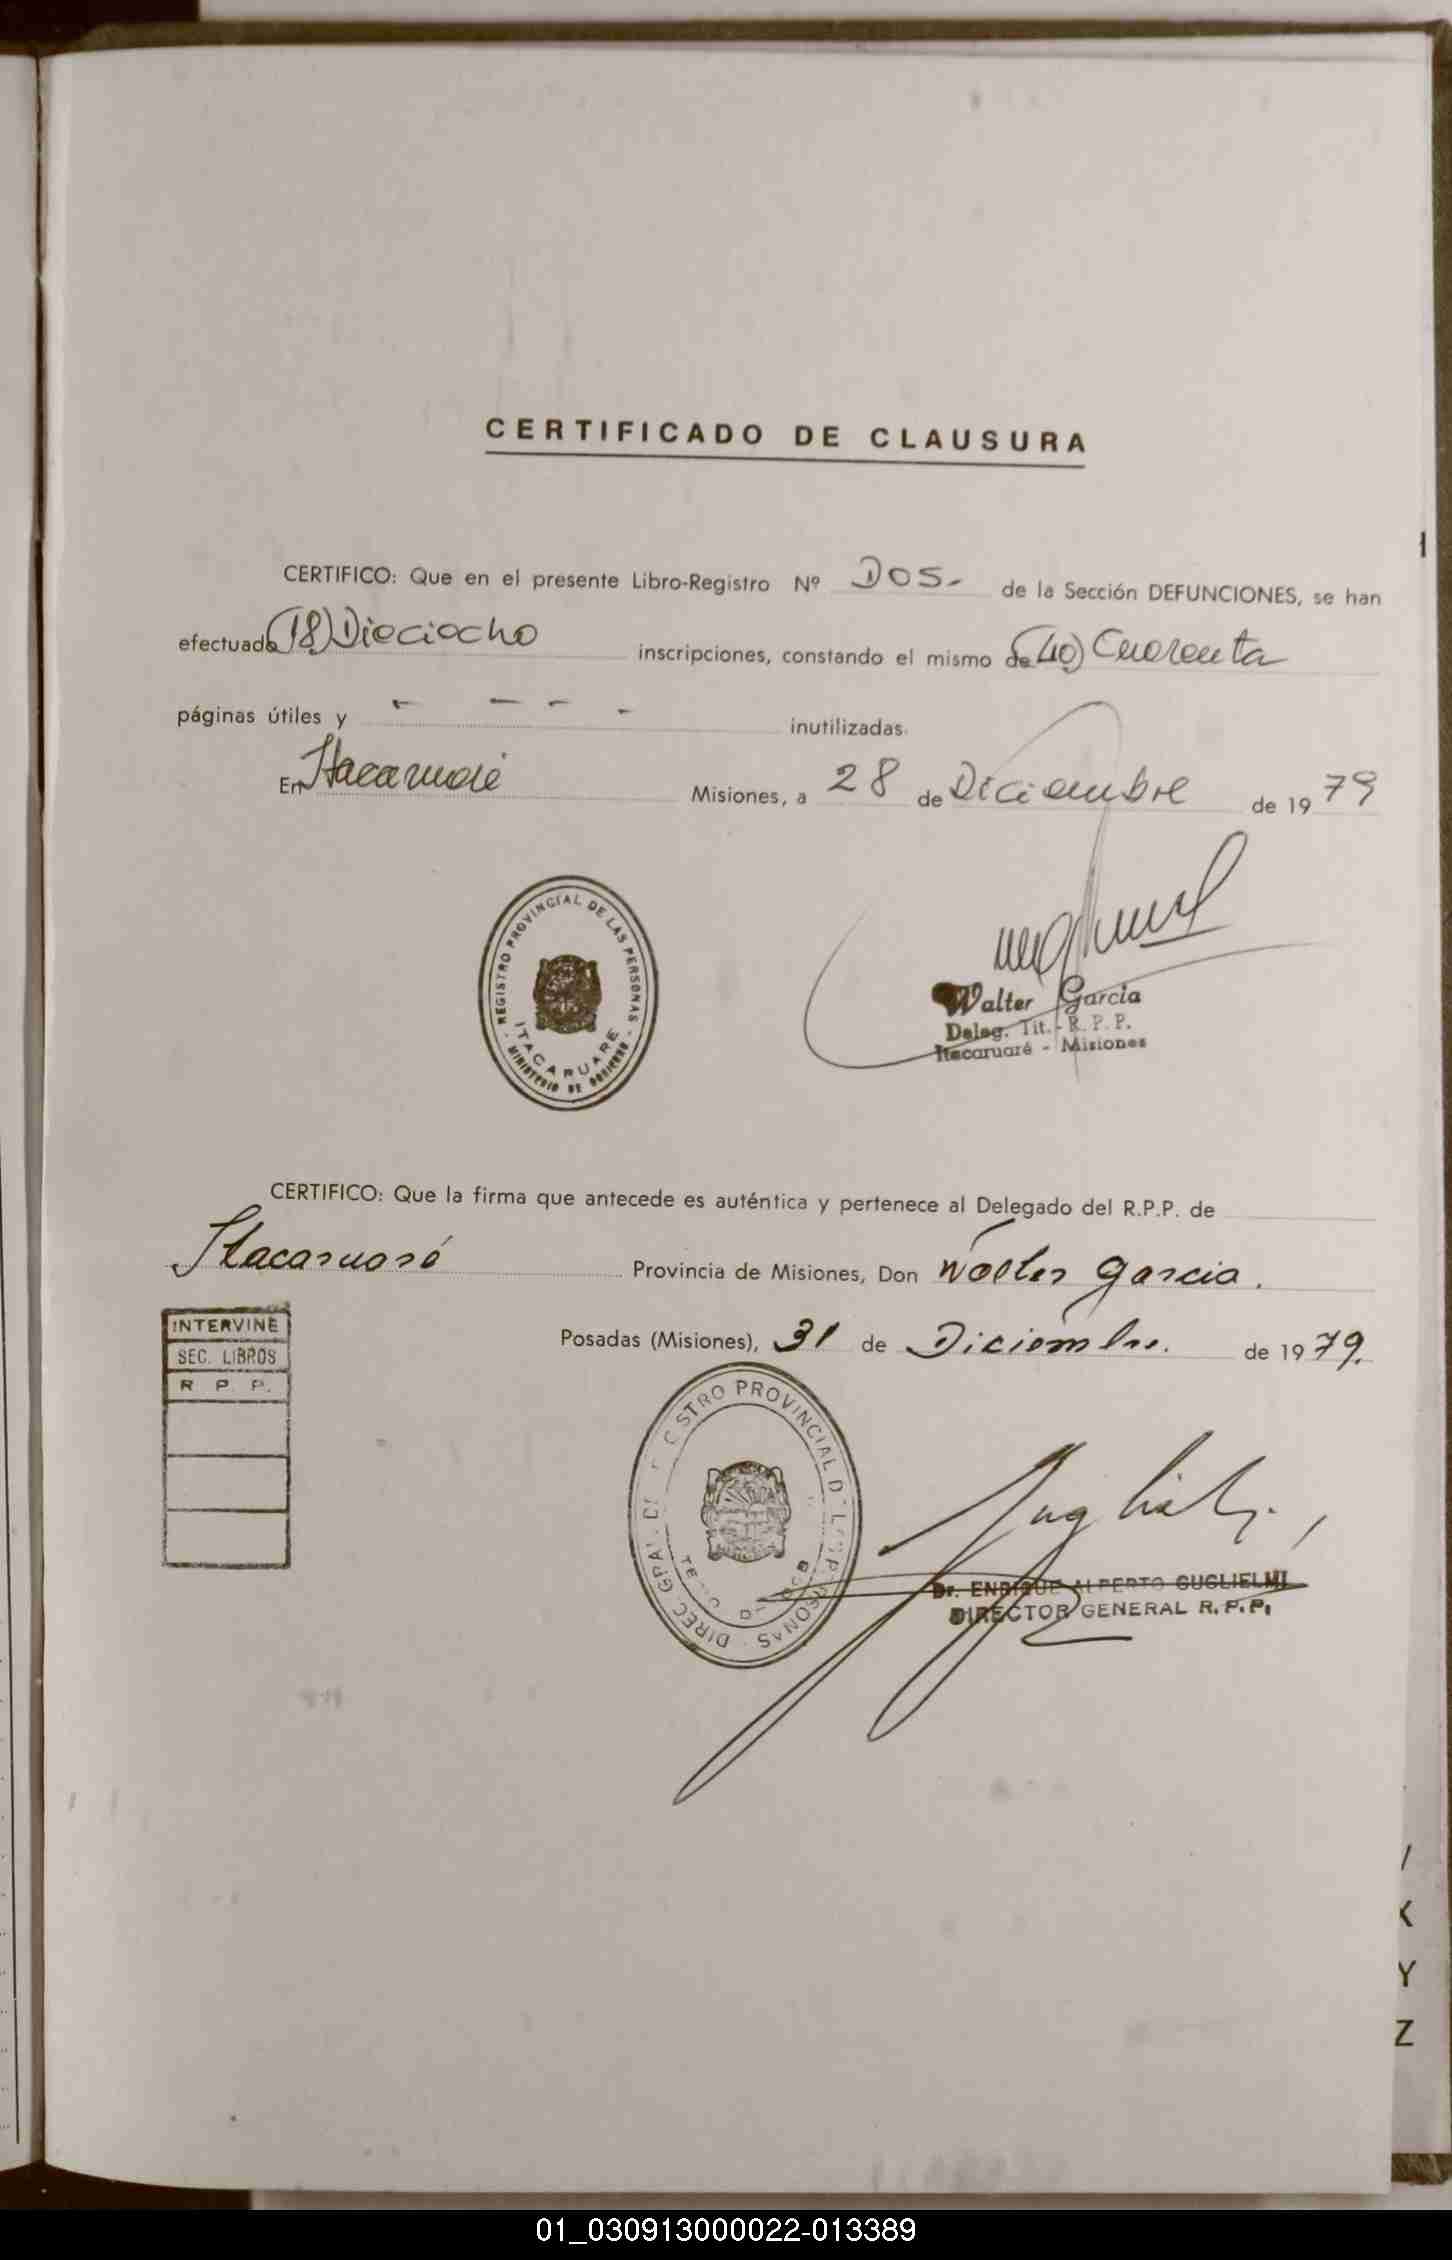 CERTIFICADO DE CLAUSURA
CERTIFICO: Que en el presente Libro-Registro Nº Dos.- de la Sección DEFUNCIONES, se han
efectuado (18) Dieciocho inscripciones, constando el mismo de (40) Cuarenta
páginas útiles y - - - - inutilizadas.
En Itacaruaré Misiones, a 28 de Diciembre de 1979
REGISTRO PROVINCIAL DE LAS PERSONAS
ITACARUARE
- MINISTERIO DE GOBIERNO -
Walter Garcia
Deleg. Tit. - R. P. P.
Itacaruaré - Misiones
CERTIFICO: Que la firma que antecede es auténtica y pertenece al Delegado del R.P.P. de
Itacaruaré Provincia de Misiones, Don Walter Garcia.
Posadas (Misiones), 31 de Diciembre. de 1979.
INTERVINE
SEC. LIBROS
R P. P.
DIREC. GRAL. PROVINCIAL
Dr. ENRIQUE ALBERTO GUGLIELMI
DIRECTOR GENERAL R.P.P.
X
Y
Z
01_030913000022-013389